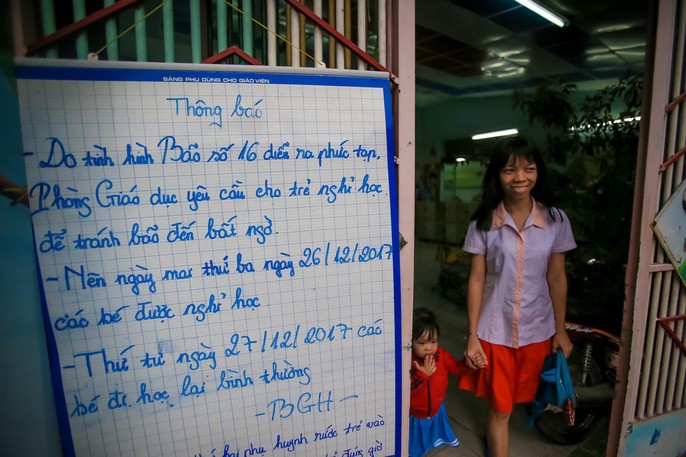 BẢNG PHỤ DÙNG CHO GIÁO VIÊN
Thông báo
- Do tình hình Bão số 16 diễn ra phức tạp,
Phòng Giáo dục yêu cầu cho trẻ nghỉ học
để tránh bão đến bất ngờ.
- Nên ngày mai thứ ba ngày 26/12/2017
các bé được nghỉ học.
- Thứ tư ngày 27/12/2017 các
bé đi học lại bình thường
- BGH -
phụ huynh rước trẻ vào
đúng giờ